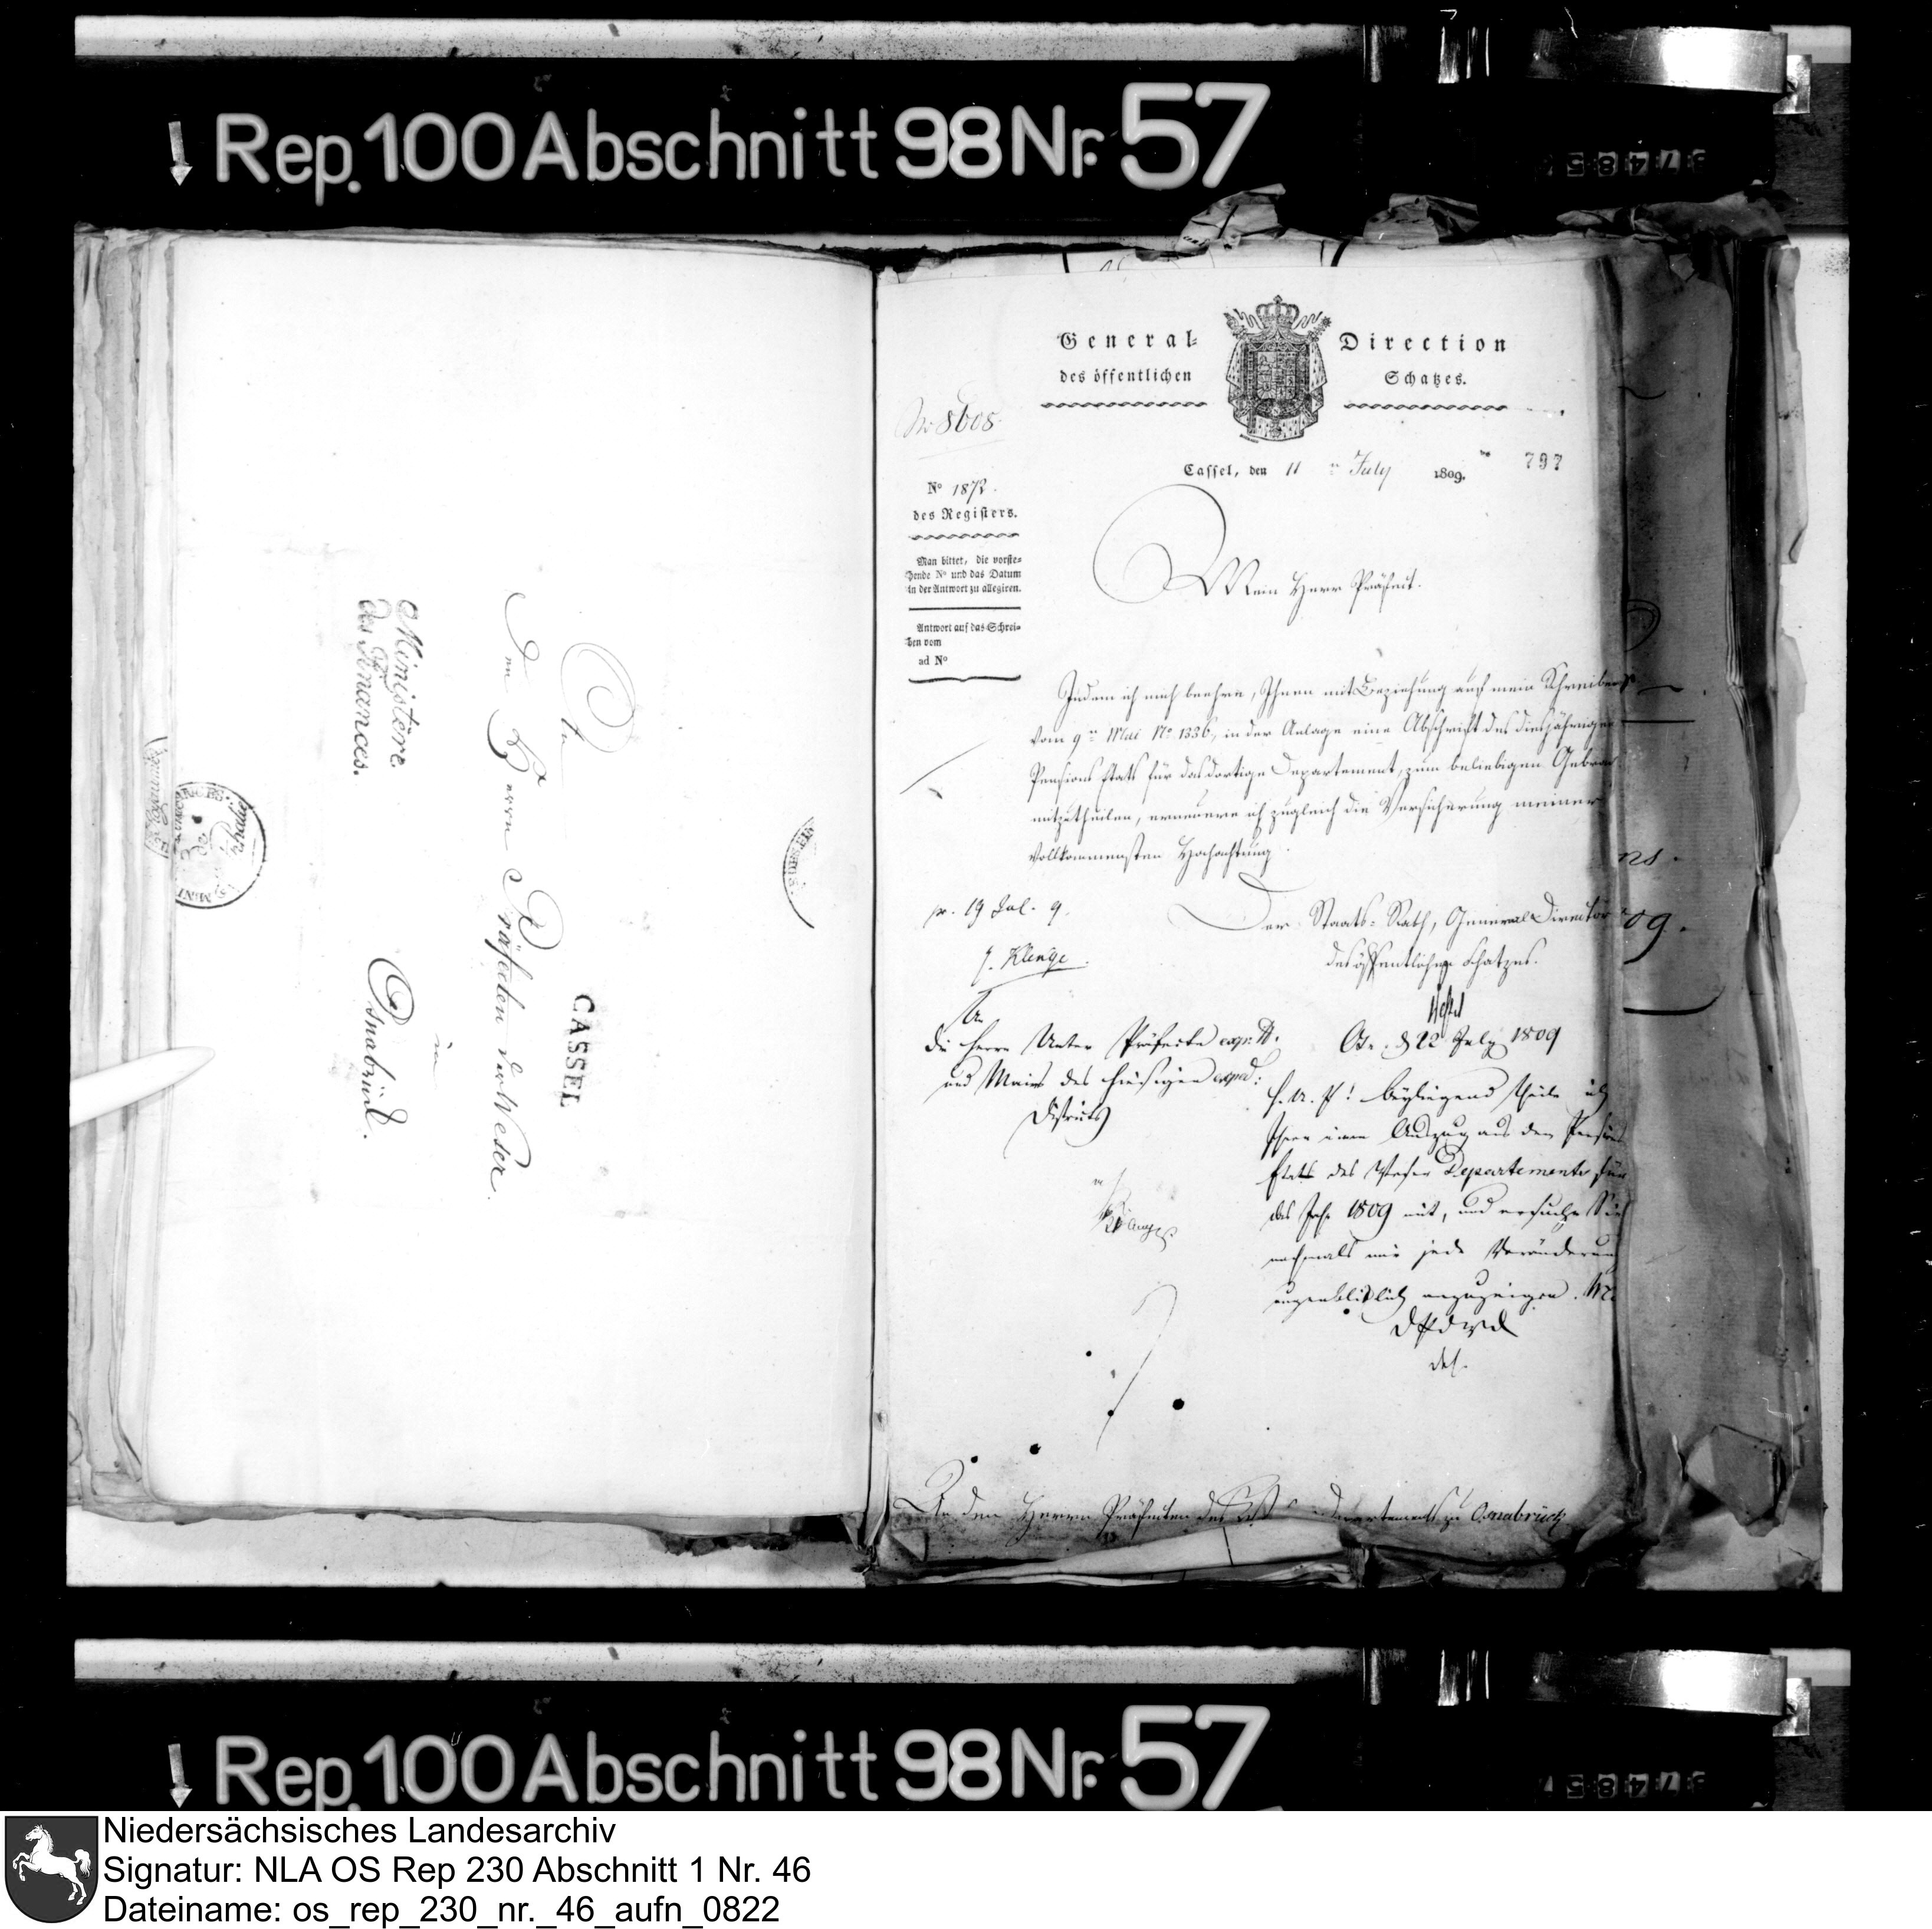 Rep. 100 Abschnitt 98 Nr. 57
An
den Herrn Präfecten der Weser
in
Osnabrück.
Ministère
des Finances.
CASSEL
General-Direction
des öffentlichen Schatzes.
No 8608
Cassel, den 11 n July 1809.
797
No 1872.
des Registers.
Man bittet, die vorste-
hende No und das Datum
in der Antwort zu allegiren.
Antwort auf das Schrei-
ben vom
ad No
Mein Herr Präfect.
Indem ich mich beehre, Ihnen mit Beziehung auf mein Schreiben
vom 9n Mai No 1336, in der Anlage eine Abschrift des diesjährigen
Pensions Etats für das dortige Departement, zum beliebigen
mitzutheilen, erneuere ich zugleich die Versicherung meiner
vollkommensten Hochachtung.
Der Staats-Rath, General Director
des öffentlichen Schatzes.
pr. 19 Jul. 9.
J. Klenze.
An
die Herrn Unter Präfecte
und Mairs des hiesigen
Districts
Os. d 22 July 1809
beyliegend theile ich
Ihnen einen Auszug aus dem Pensions
Etats des Weser Departements für
das Jahr 1809 mit, und ersuche Sie
nochmals mir jede Veränderung
augenblicklich anzuzeigen.
An den Herrn Präfecten des Departements zu Osnabrück
Rep. 100 Abschnitt 98 Nr. 57
Niedersächsisches Landesarchiv
Signatur: NLA OS Rep 230 Abschnitt 1 Nr. 46
Dateiname: os_rep_230_nr._46_aufn_0822